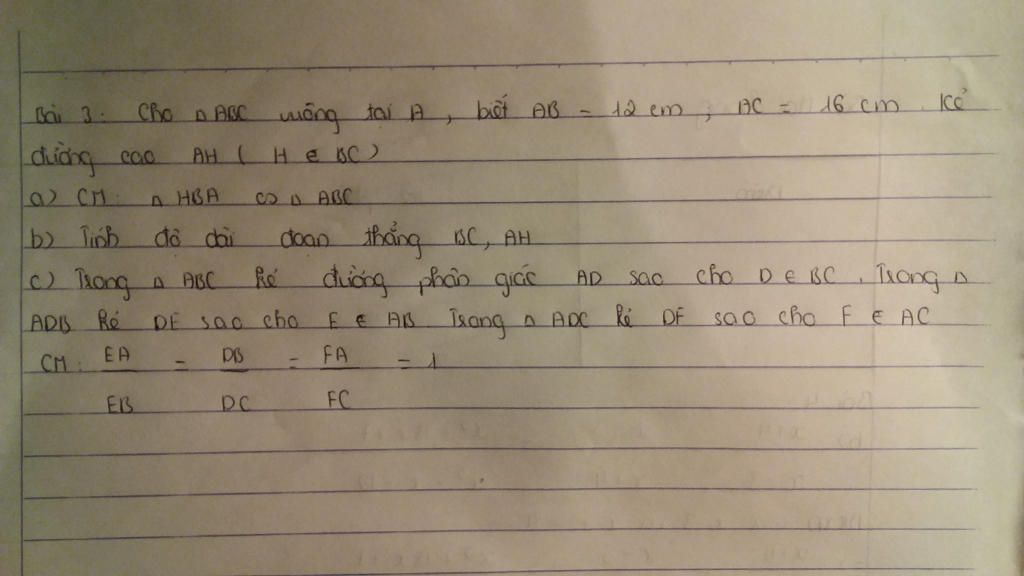 Bài 3: Cho △ABC vuông tại A, biết AB = 12 cm, AC = 16 cm. Kẻ
đường cao AH ( H ∈ BC )
a) CM: △ HBA ∽ △ ABC
b) Tính độ dài đoạn thẳng BC, AH
c) Trong △ ABC kẻ đường phân giác AD sao cho D ∈ BC. Trong △
ADB kẻ DE sao cho E ∈ AB. Trong △ ADC kẻ DF sao cho F ∈ AC
CM: EA/EB = DB/DC = FA/FC = 1